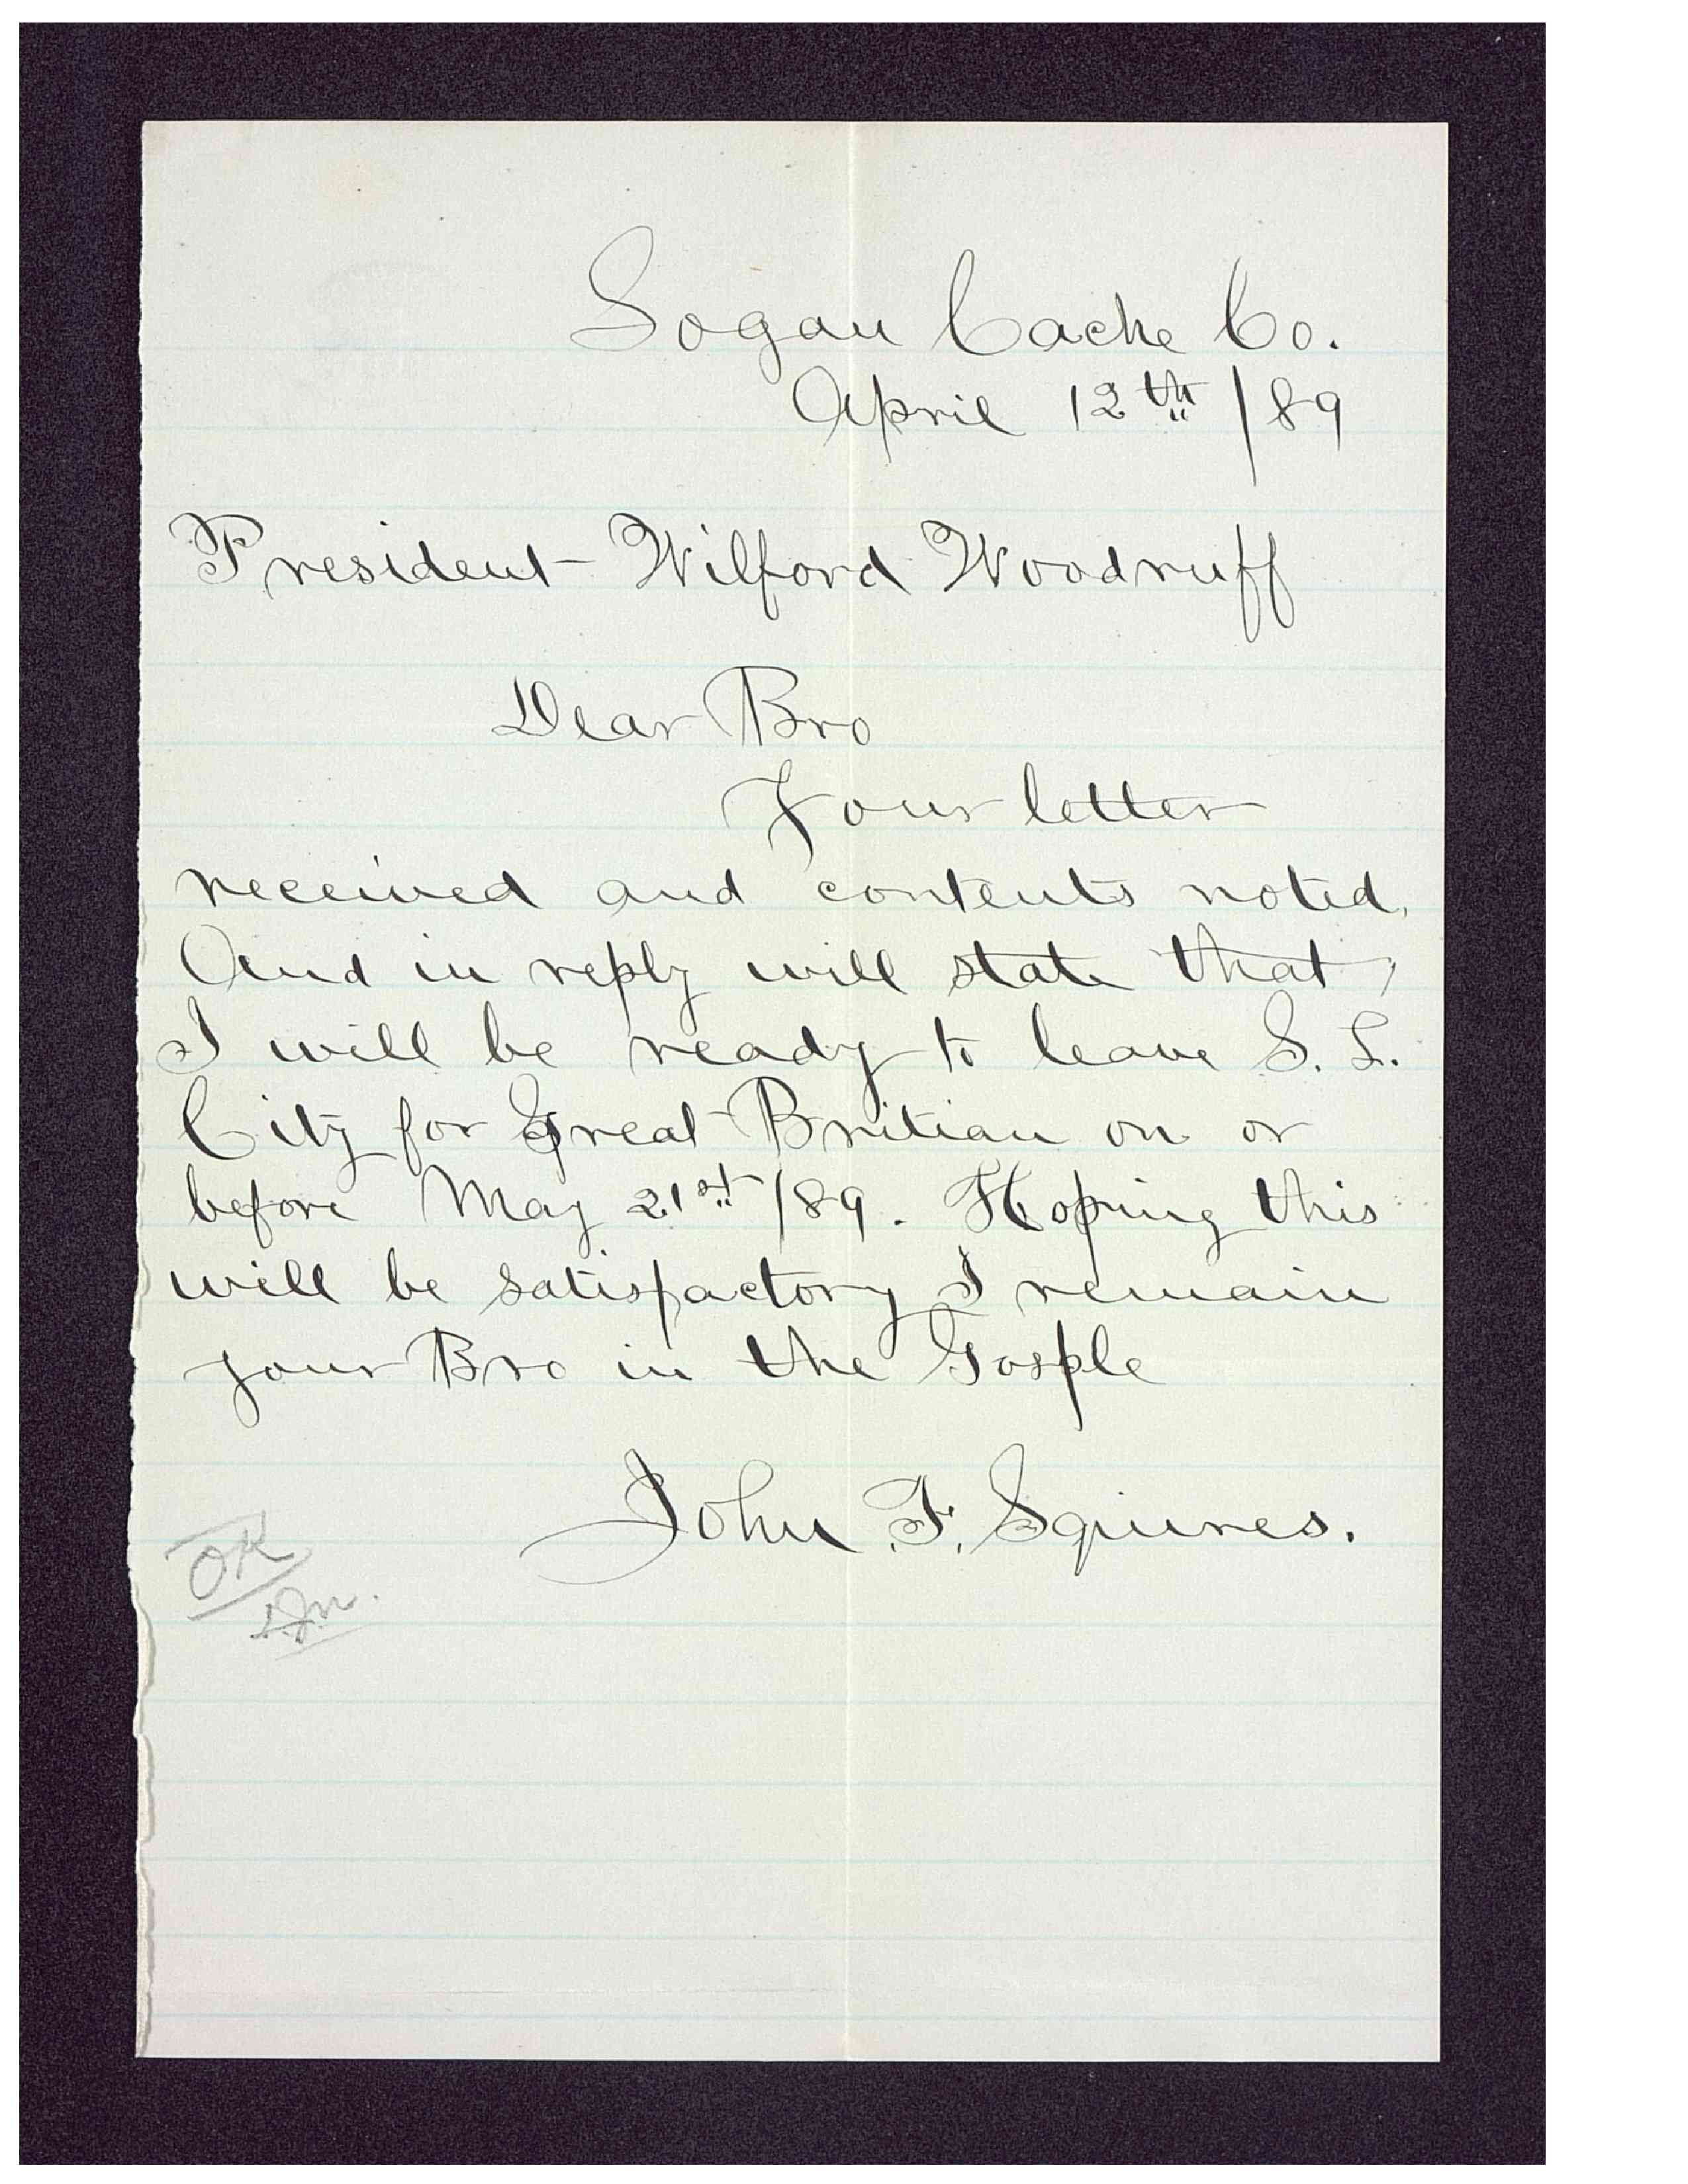 Logan Cache Co.
April 12th /89
President Wilford Woodruff
Dear Bro
Your letter
received and contents noted,
And in reply will state that,
I will be ready to leave S. L.
City for Great Britian on or
before May 21st /89. Hoping this
will be satisfactory I remain
your Bro in the Gosple
John F. Squires.
OK